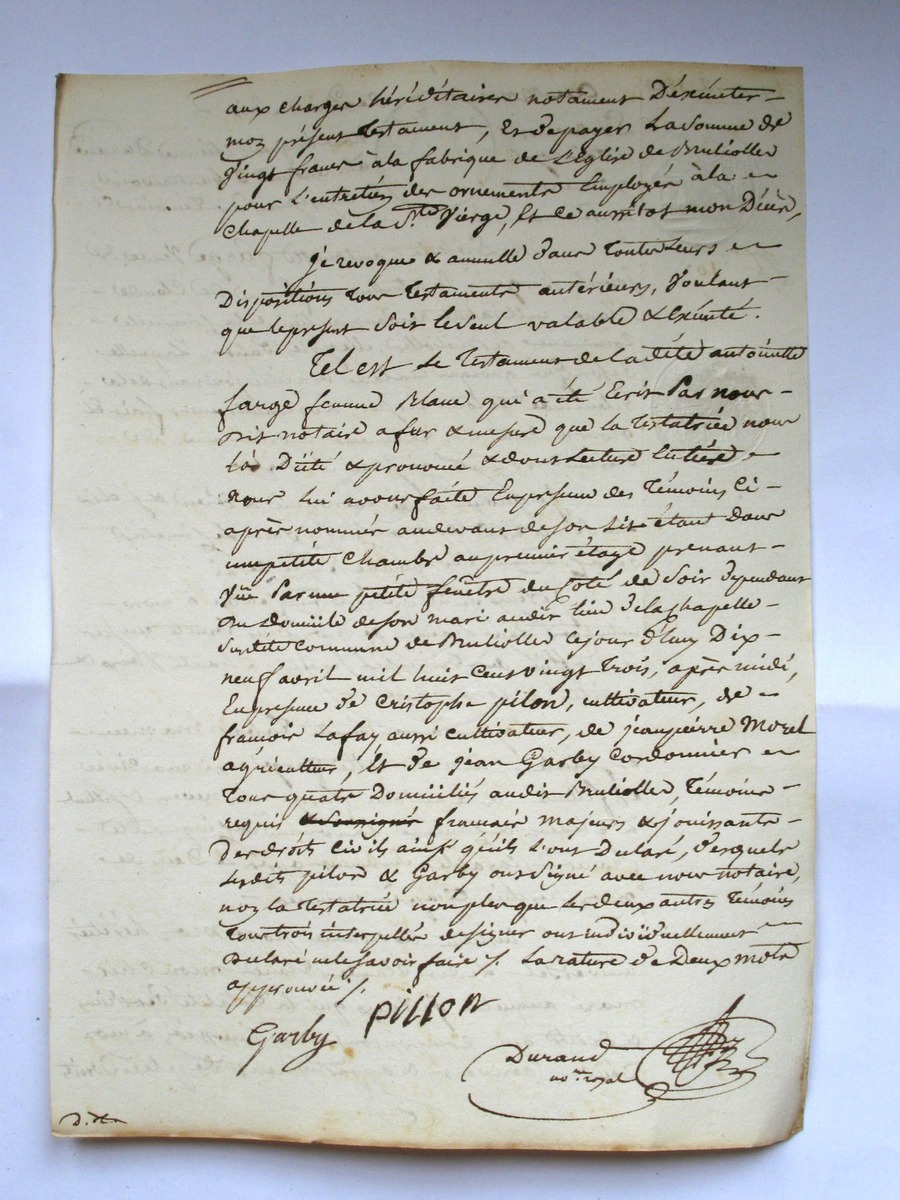 aux charges héréditaires notament D'éxécuter
mon présent Testament, Et de payer La Somme de
Vingt francs à la fabrique de L'Eglise de Brullioles
pour L'entretien des ornements Employés à la
Chapelle de la Ste Vierge, Et ce aussitot mon Décès,
Je revoque & annulle dans toutes Leurs
Dispositions tous Testaments antérieurs, Voulant
que le présent Soit le Seul valable & Exécuté.
Tel est Le Testament de la dite antoinette
farge femme Blanc qui a été Ecrit Par nous
dit notaire a fur & mesure que la Testatrice nous
l'a Dicté & prononcé & dont Lecture Entière
nous lui avons faite En presence des Témoins Ci
après nommés au devant de son Lit étant Dans
une petite Chambre au premier étage prenant
Vue Par une petite fenêtre du Coté de Soir dépendant
du Domicile de son mari audit lieu de la Chapelle
Susdite Commune de Brullioles le jour d'huy Dix
neuf avril mil huit Cent vingt trois, après midi,
En presence de Cristophe pilon, cultivateur, de
francois Lafay aussi cultivateur, de jean pierre Morel
agriculteur, Et de jean Garby Cordonnier
tous quatre Domiciliés audit Brullioles, Témoins
requis & Soussignés francais majeurs & jouissants
des droits Civils ainsi qu'ils L'ont Déclaré, desquels
Lesdits pilon & Garby ont Signé avec nous notaire,
non la Testatrice non plus que Les deux autres Témoins
tous trois interpellés de signer ont individuellement
Déclaré ne le Savoir faire ./. La rature de Deux mots
approuvée ./.
Garby PILLON
Durand
no.re royal